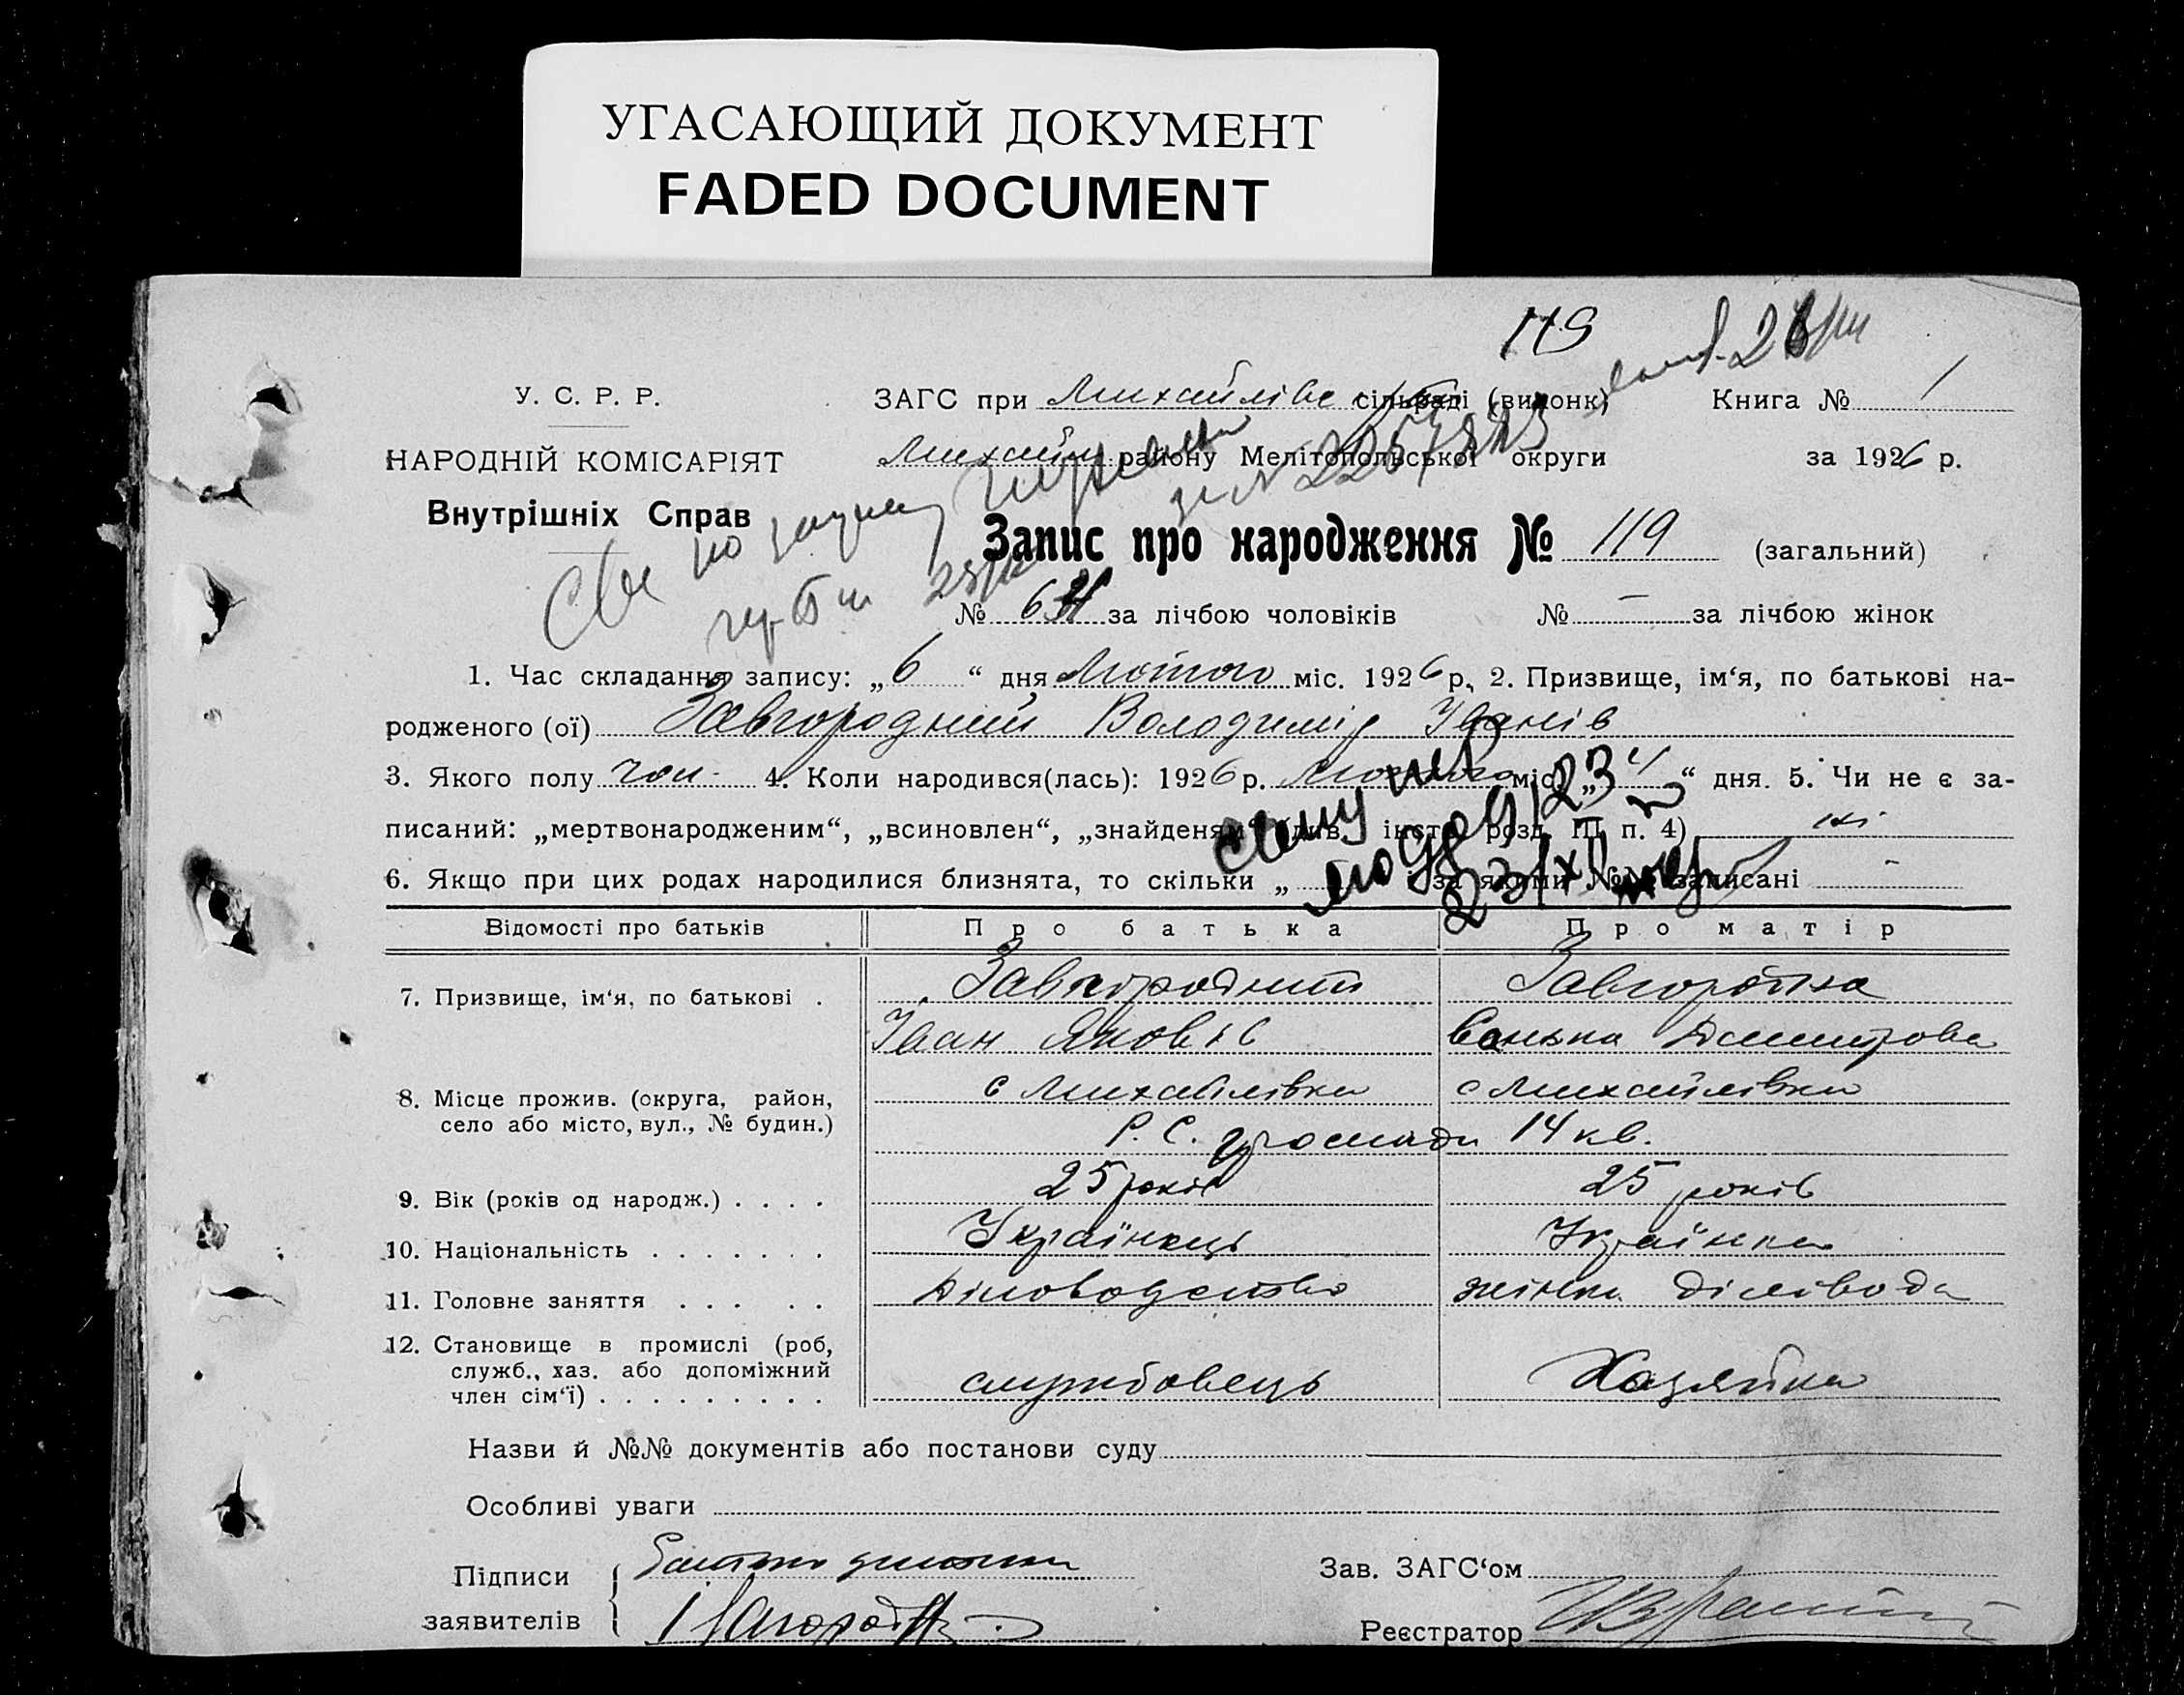 УГАСАЮЩИЙ ДОКУМЕНТ
FADED DOCUMENT
119
У. С. Р. Р.
ЗАГС при Михайлівс сільраді (виконк)
Книга № 1
НАРОДНІЙ КОМІСАРІЯТ
Михайл району Мелітопольської округи
за 1926 р.
Внутрішніх Справ
Запис про народження № 119 (загальний)
№ 63 за лічбою чоловіків № — за лічбою жінок
1. Час складання запису: „6“ дня Лютого міс. 1926 р. 2. Призвище, ім‘я, по батькові на-
родженого (ої) Завгородний Володимір Іванів
3. Якого полу чол. 4. Коли народився(лась): 1926 р. Лютого міс. „4“ дня. 5. Чи не є за-
писаний: „мертвонародженим“, „всиновлен“, „знайденям“ (див. інстр. розд. III п. 4) ні
6. Якщо при цих родах народилися близнята, то скільки „ і за якими №№ записані —
Відомості про батьків Про батька Про матір
7. Призвище, ім‘я, по батькові . Завгородний Завгородня
Іван Яковів Дмитрова
8. Місце прожив. (округа, район, с Михайлівка с Михайлівка
село або місто, вул., № будин.) Р. С. громади 14 кв.
9. Вік (років од народж.) . . . . 25 років 25 років
10. Національність . . . . . . . Українець Українка
11. Головне заняття . . . . . Діловодство жінка діловода
12. Становище в промислі (роб,
служб., хаз. або допоміжний
член сім‘ї) . . . . . . . . . службовець Хазяйка
Назви й №№ документів або постанови суду
Особливі уваги
Підписи
заявителів
Зав. ЗАГС‘ом
Реєстратор